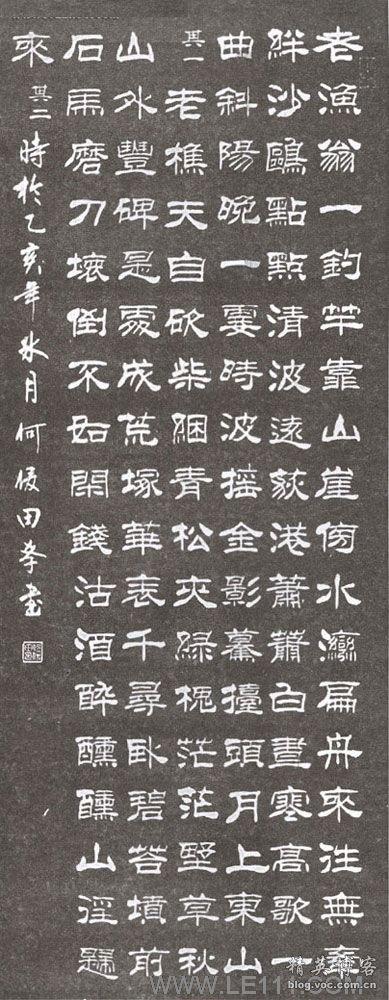 老漁翁一釣竿靠山崖傍水灣扁舟來往無牽
絆沙鷗點點清波遠荻港蕭蕭白晝寒高歌一
曲斜陽晚一霎時波搖金影驀擡頭月上東山
其一 老樵夫自砍柴綑青松夾綠槐茫茫野草秋
山外豐碑是處成荒塚華表千尋臥碧苔墳前
石馬磨刀壞倒不如閑錢沽酒醉醺醺山徑歸
來 其二 時於乙亥年冰月何俊田書
精英博客
blog.voc.com.cn